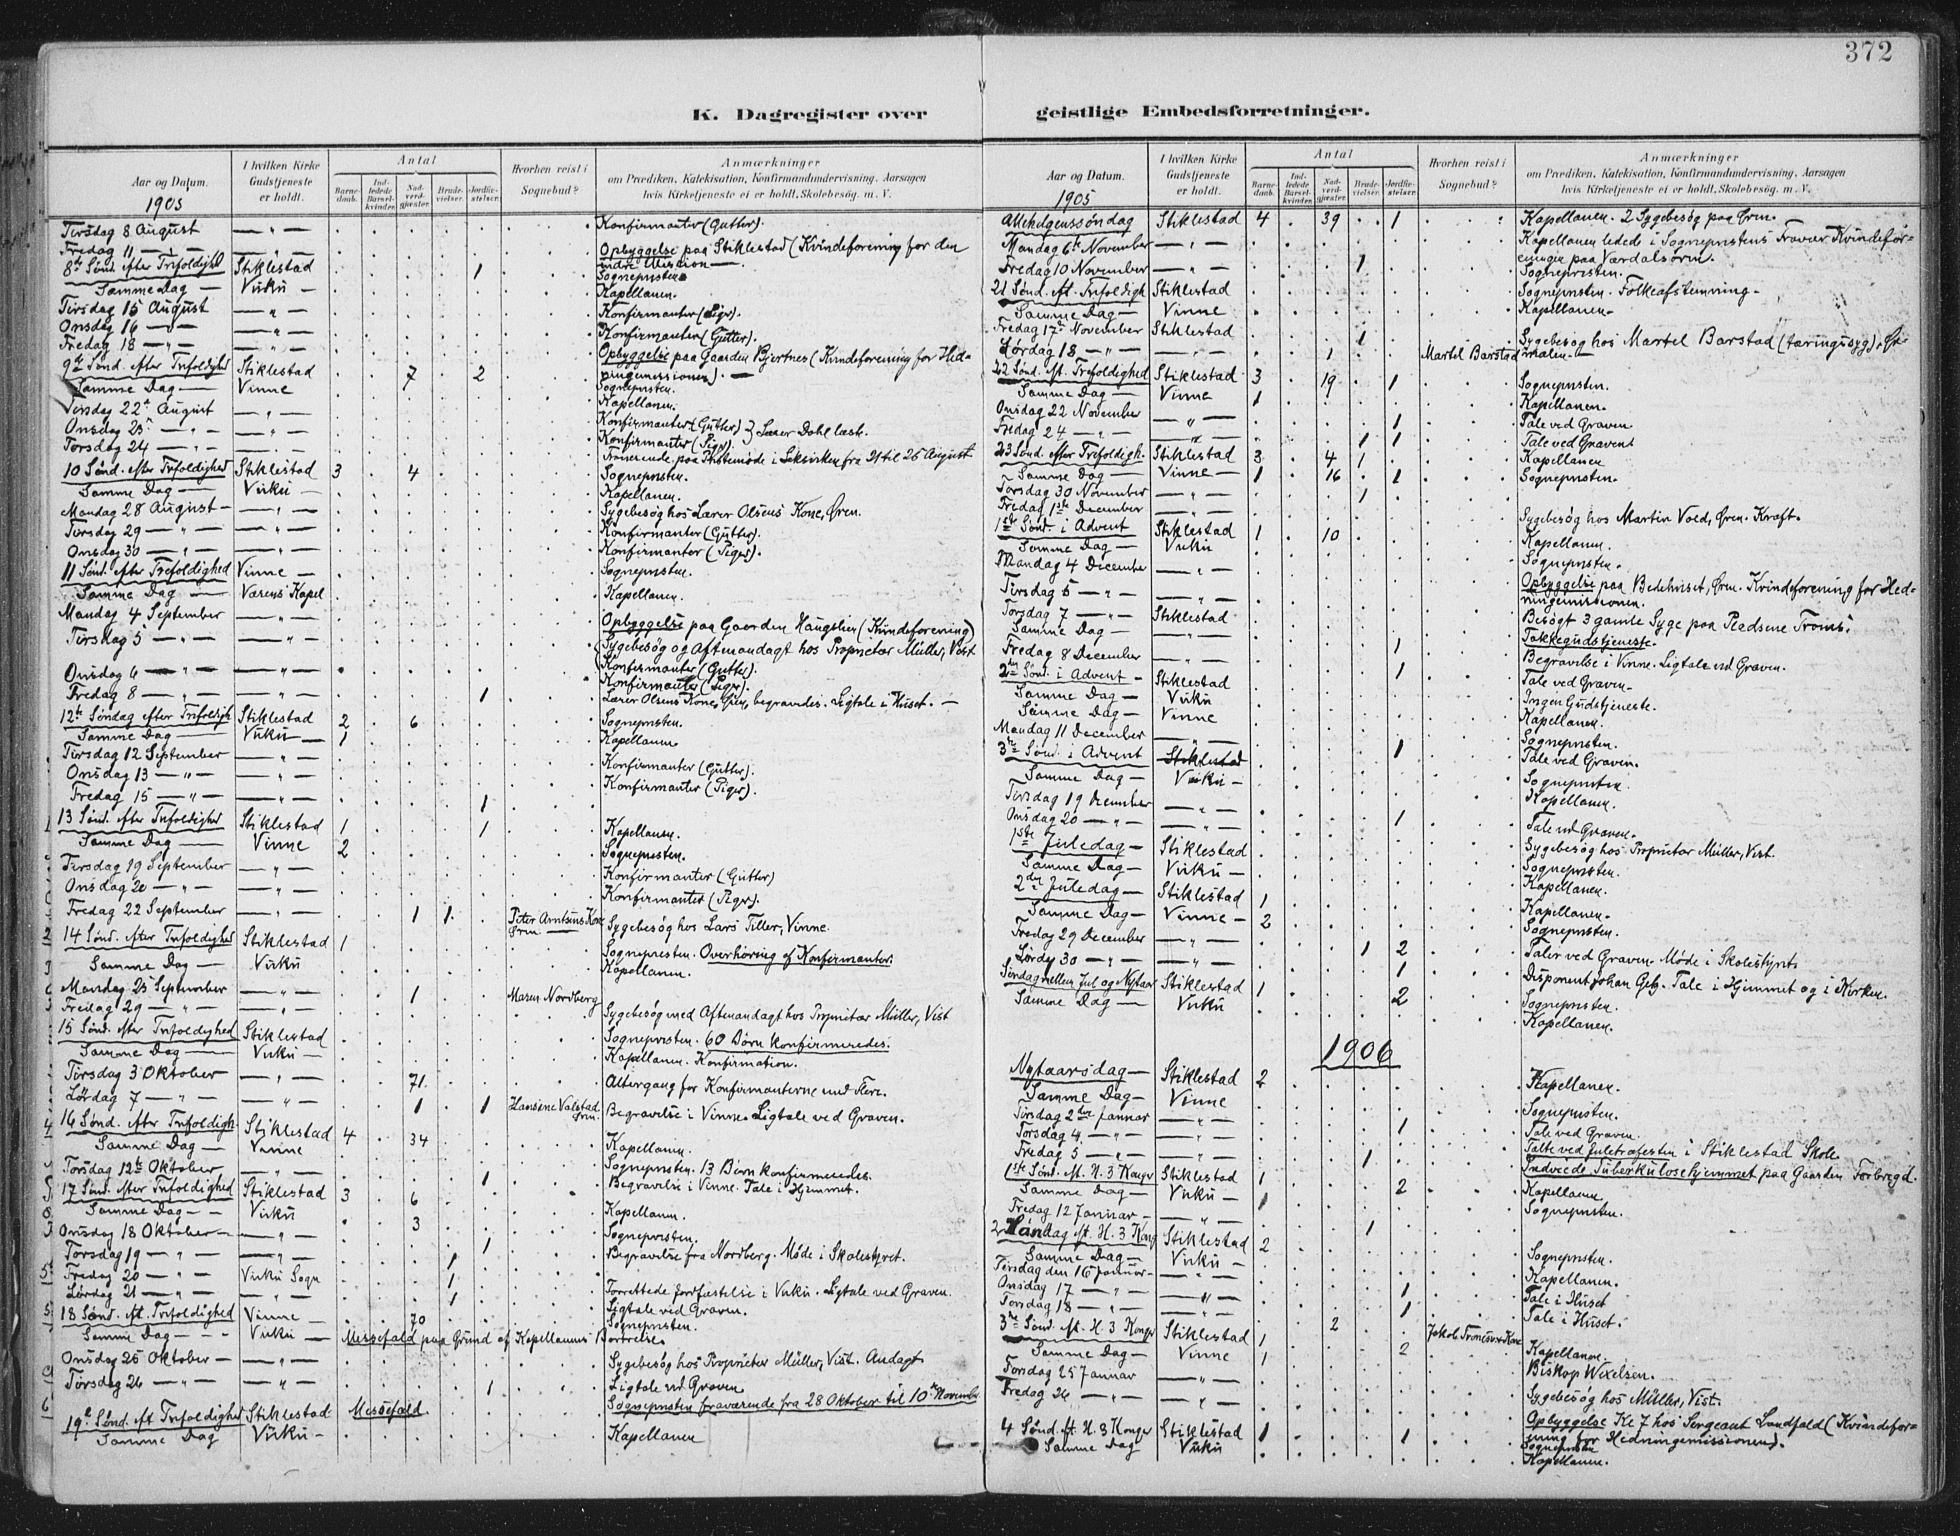 372
K. Dagregister over
geistlige Embedsforretninger.
Aar og Datum.
I hvilken Kirke Gudstjeneste er holdt.
Antal
Barnedaab.
Indledede Barselkvinder.
Nadverdgjæster.
Brudevielser.
Jordfæstelser.
Hvorhen reist i Sognebud?
Anmærkninger
om Prædiken, Katekisation, Konfirmandundervisning, Aarsagen
hvis Kirketjeneste ei er holdt, Skolebesøg. m. V.
1905
Tirsdag 8 August — " — Konfirmanter (Gutter).
Fredag 11 — " — — " — Opbyggelse paa Stiklestad (Kvindeforening for den
indre Mission —
8de Sønd. efter Trefoldighed Stiklestad 1 Sognepresten
Samme Dag — Vuku — Kapellanen.
Tirsdag 15 August — " — Konfirmanter (Piger).
Onsdag 16 — " — — " — Konfirmanter (Gutter).
Fredag 18 — " — — " — Opbyggelse paa Gaarden Bjertnes (Kvindeforening for Hed-
ningemissionen). —
9de Sønd. efter Trefoldighed Stiklestad 7 2 Sognepresten.
Samme Dag — Vinne Kapellanen.
Tirsdag 22 August — " — Konfirmanter (Gutter)
Onsdag 23 — " — — " — Konfirmanter (Piger). } Lærer Dahl læst.
Torsdag 24 — " — — " — Fraværende paa Prestemøde i fra 21 til 25 August
10 Sønd. efter Trefoldighed Stiklestad 3 4 Sognepresten.
Samme Dag — Vuku — Kapellanen.
Mandag 28 August — — " — Sygebesøg hos Lærer Olsens Kone, Øren.
Tirsdag 29 — " — — " — Konfirmanter (Gutter).
Onsdag 30 — " — — " — Konfirmanter (Piger).
11 Sønd. efter Trefoldighed Vinne — Sognepresten.
Samme Dag — Værens Kapel Kapellanen.
Mandag 4 September — " — Opbyggelse paa Gaarden Haugslien (Kvindeforening)
Tirsdag 5 — " — — " — Sygebesøg og Aftenandagt hos Proprietær Müller, Vist
Onsdag 6 — " — — " — Konfirmanter (Gutter).
Fredag 8 — " — — " — 1 Konfirmanter (Piger).
Lærer Olsens Kone, Øren, begravedes. Ligtale i Huset. —
12te Søndag efter Trefoldigh. Stiklestad 2 6 Sognepresten.
Samme Dag — Vuku — 1 Kapellanen
Tirsdag 12 September — " — Konfirmanter (Gutter).
Onsdag 13 — " — — " — Konfirmanter (Piger).
Fredag 15 — " — — " — 1
13 Sønd. efter Trefoldighed Stiklestad 1 1 Kapellanen.
Samme Dag — Vinne 2 Sognepresten.
Tirsdag 19 September — " — Konfirmanter (Gutter)
Onsdag 20 — " — — " — Konfirmanter (Piger).
Fredag 22 September — " — 1 1 Peter Arntsens Kone Øren. Sygebesøg hos Lars Tiller, Vinne.
14 Sønd. efter Trefoldighed Stiklestad 1 Sognepresten. Overhøring af Konfirmanter.
Samme Dag — Vuku Kapellanen.
Mandag 25 September — " — 1 Maren Nordberg
Fredag 29 — " — — " — Sygebesøg med Aftenandagt hos Proprietær Müller, Vist
15 Sønd. efter Trefoldighed Stiklestad Sognepresten. 60 Børn konfirmeredes.
Samme Dag — Vuku — Kapellanen. Konfirmation.
Tirsdag 3 Oktober — " — 71 Altergang for Konfirmanterne med Flere.
Lørdag 7 — " — — " — 1 1 Hansine Valstad Øren. Begravelse i Vinne. Ligtale ved Graven.
16 Sønd. efter Trefoldigh. Stiklestad 4 34 Kapellanen.
Samme Dag — Vinne Sognepresten. 13 Børn konfirmeredes.
Torsdag 12te Oktober — " — 1 Begravelse i Vinne. Tale i Hjemmet.
17 Sønd. efter Trefoldighed Stiklestad 3 6 Kapellanen.
Samme Dag — Vuku 3 Sognepresten.
Onsdag 18 Oktober — — " — 1 Begravelse fra Nordberg. Møde i Skolestyret.
Torsdag 19 — " — — " — 1
Fredag 20 — " — Vuku Sogn 1 Forrettede Jordfæstelse i Vuku. Ligtale ved Graven.
Lørdag 21 — " — — " — 1 Ligtale ved Graven.
18 Sønd. eft. Trefoldighed Vinne — 70 Sognepresten.
Samme Dag — Vuku — Messefald paa Grund af Kapellanens Bortreise.
Onsdag 25 Oktober — — " — Sygebesøg hos Proprietær Müller, Vist. Andagt
Torsdag 26 — " — 1 Ligtale ved Graven
Sognepresten fraværende fra 28 Oktober til 10de November
19de Sønd. eft. Trefoldighed Stiklestad Messefald.
Samme Dag Vuku — Kapellanen
Aar og Datum.
I hvilken Kirke Gudstjeneste er holdt.
Antal
Barnedaab.
Indledede Barselkvinder.
Nadverdgjæster.
Brudevielser.
Jordfæstelser.
Hvorhen reist i Sognebud?
Anmærkninger
om Prædiken, Katekisation, Konfirmandundervisning, Aarsagen
hvis Kirketjeneste ei er holdt, Skolebesøg. m. V.
1905
Allehelgenssøndag Stiklestad 4 39 1 Kapellanen. 2 Sygebesøg paa Øren.
Mandag 6te November — " — Kapellanen ledede i Sogneprestens Fravær Kvindefor-
eninger paa Værdalsøren.
Fredag 10 November — " — 1 Sognepresten.
21 Sønd. eft. Trefoldigh Stiklestad Sognepresten. Folkeafstemning.
Samme Dag — Vinne Kapellanen
Fredag 17de November Stiklestad 1
Lørdag 18 — " — — " — 1 Martel Barstad Sygebesøg hos Martel Barstad (tæringssyg),
22 Sønd. eft. Trefoldighed Stiklestad 3 19 1 Sognepresten.
Samme Dag — Vinne 1 Kapellanen.
Onsdag 22 November — " — 1 Tale ved Graven
Fredag 24 — " — — " — 1 1 Tale ved Graven
23 Sønd. efter Trefoldigh. Stiklestad 3 4 1 Kapellanen
Samme Dag — Vinne — 1 16 1 Sognepresten.
Torsdag 30 November — " — 1
Fredag 1ste December — " — Sygebesøg hos Martin Vold, Øren. Kræft.
1ste Sønd. i Advent Stiklestad 1 10 Kapellanen.
Samme Dag — Vuku Sognepresten.
Mandag 4 December — " — Opbyggelse paa Bedehuset, Øren. Kvindeforening for Hed-
ningemissionen.
Tirsdag 5 — " — — " — Besøgt 3 gamle Syge paa Pladsene
Torsdag 7 — " — Stiklestad Takkegudstjeneste.
Samme Dag — — " — 1 Begravelse i Vinne. Ligtale ved Graven.
Fredag 8 December — " — 1 Tale ved Graven
2den Sønd. i Advent — Stiklestad Ingen Gudstjeneste.
Samme Dag — Vuku Kapellanen.
Samme Dag — Vinne Sognepresten.
Mandag 11 December — " — 1 Tale ved Graven.
3die Sønd. i Advent Stiklestad Sognepresten.
Samme Dag — Vuku — Kapellanen.
Tirsdag 19 December — " — 1 Tale ved Graven.
Onsdag 20 — " — — " — Sygebesøg hos Proprietær Müller, Vist.
1ste Juledag — Stiklestad Sognepresten.
Samme Dag — Vuku — Kapellanen.
2den Juledag — Stiklestad 1 Kapellanen.
Samme Dag — Vinne — 2 Sognepresten.
Fredag 29 December — " — 1 2 Taler ved Graven. Møde i Skolestyret
Lørdag 30 — " — — " — 1 Disponent Johan Getz. Tale i Hjemmet og i Kirken.
Søndag mellem Jul og Nytaar Stiklestad 1 2 Sognepresten.
Samme Dag — Vuku Kapellanen.
1906
Nytaarsdag — Stiklestad 2 Kapellanen.
Samme Dag — Vinne Sognepresten.
Tirsdag 2den Januar — " — 1 Tale ved Graven.
Torsdag 4 — " — — " — Talte ved Juletræfesten i Stiklestad Skole
Fredag 5 — " — — " — 1 Indviede Tuberkulosehjemmet paa Gaarden Forbregd.
1ste Sønd. eft. H. 3 Konger Stiklestad 1 2 Kapellanen
Samme Dag — Vuku — 1 Sognepresten.
Fredag 12 Januar — — " — 1
2 Søndag eft. H. 3 Kong Stiklestad 2 Sognepresten.
Samme Dag — Vuku — Kapellanen.
Tirsdag den 16 Januar — — " — 1 Tale i Huset
Onsdag 17 — " — — " — 1 Tale i Huset.
Torsdag 18 — " — — " — 2 Jakob Kone
3die Sønd. eft. H. 3 Konger Stiklestad 1 2 Kapellanen.
Samme Dag — Vinne 1 Biskop Wexelsen.
Torsdag 25 Januar — " — Sygebesøg hos Müller, Vist.
Fredag 26 — " — — " — Opbyggelse Kl. 7 hos Sergeant Lundfald (Kvindefor-
ening for Hedningemissionen).
4 Sønd. eft. H. 3 Konger Stiklestad 1 1 Sognepresten
Samme Dag Vuku Kapellanen.